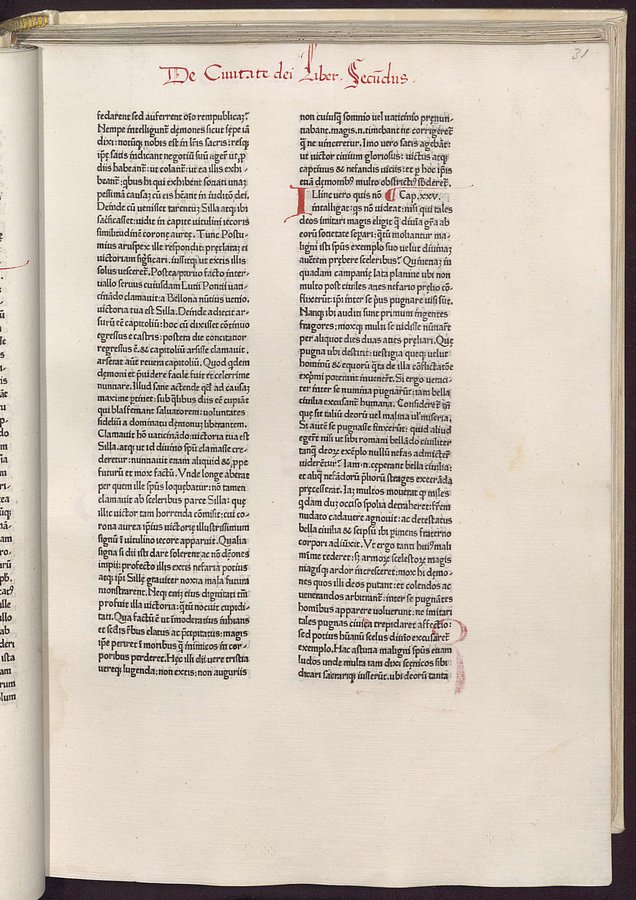 De Ciuitate dei Liber Secūdus
31
fedarent sed auferrent oīo rempublicaȝ?
Nempe intelligunt̄ dęmones sicut sępe iā
dixi: notūq; nobis est in lr̄is sacris: resq;
ip̄ę satis indicant negotiū suū ageŕ ut p̄
diis habeant̄: ut colant̄: ut ea illis exhi-
beant̄: qbus hi qui exhibent sociati unaȝ
pessimā causaȝ cū eis hēant in iuditō dei.
Deinde cū uenisset tarentū Silla atq; ibi
sacricasset: uidit in capite uitulini iecoris
similitudinē coronę aureę. Tunc Postu-
mius aruspex ille respondit: pręclarā ei
victoriam significari. iussitq; ut extis illis
solus uesceret̄. Postea paruo facto inter-
uallo seruus cuiusdam Lutii Pontii uati-
cināndo clamauit: a Bellona nūtius uenio.
victoria tua est Silla. Deinde adiecit ar-
surū eē capitoliū: hoc cū dixisset cōtinuo
egressus e castris: postera die concitatior
regressus ē. & capitoliū arsisse clamauit.
arserat aūt reuera capitoliū. Quod qdem
demoni et p̄uidere facile fuit et celerrime
nuntiare. Illud sane actende qd̄ ad causaȝ
maxime ptinet: sub qlibus diis eē cupiāt
qui blasfemant saluatorem: uoluntates
fideliū a dominatu demonuȝ liberantem.
Clamauit hō uaticināndo: uictoria tua est
Silla. atq; ut id diuino sp̄u clamasse cre-
deretur: nuntiauit etiam aliquid & ꝓpe
futurū et mox factū. Vnde longe aberat
per quem ille sp̄us loquebatur: nō tamen
clamauit ab sceleribus parce Silla: que
illic victor tam horrenda cōmisit: cui co-
rona aurea ip̄ius victorię illustrissimum
signū ī uitulino iecore apparuit. Qualia
signa si dii iusti dare solerent ac nō dęōnes
impii: profecto illis extis nefaria potius
atq; ip̄i Sillę grauiter noxia mala futura
monstrarent. Neq; enī eius dignitati tm̄
profuit illa uictoria: qȝtū nocuit cupidi-
tati. Qua factū ē ut īmoderatius inhians
et secūdis reƀus elatus ac p̄cipitatus: magis
ip̄e periret ī moribus qȝ inimicos in cor-
poribus perderet. Hęc illi dii uere tristia
uereq; lugenda: non extis: non auguriis
non cuiusq; somnio uel uaticinio pręnun-
tiabant. magis .n. timebant ne corrigeret̄
qȝ ne uinceretur. Imo uero satis agebāt:
ut uictor ciuium gloriosus: uictus atq;
captiuus & nefandis uiciis: et p̄ hoc ip̄is
etiā dęmonibꝰ multo obstrictiꝰ sƀderet̄.
Illinc uero quis nō ¶ Cap .xxv.
intelligat: qs nō uideat: nisi qui tales
deos imitari magis eligit qȝ diuīa gr̄a ab
eorū societate separi: qȝtū moliantur ma-
ligni isti sp̄us exemplo suo uelut diuinaȝ
auct̄em prębere sceleribus? Qui in eaȝ in
quadam campanię lata planitie ubi non
multo post ciuiles aties nefario prelio cō-
flixerūt: ip̄i inter se prius pugnare uisi sūt.
Nanq; ibi auditi sunt primum ingentes
fragores: moxq; multi se uidisse nūtiar̄t
per aliquot dies duas aties pręliari. Que
pugna ubi destitit: uestigia queq; uelut
hominū & equorū qȝta de illa cōflictatōe
exp̄mi poterant inuenert̄. Si ergo ueraci-
ter inter se numina pugnarūt: iam bella
ciuilia excusant̄ humana. Consideret̄ tn̄
que sit taliū deorū uel malitia ul̓ miseria.
Si aūtē se pugnasse finxerūt: quid aliud
egerūt nisi ut sibi romani bellādo ciuiliter
tanqȝ deoȝ exēplo nullū nefas admicteŕ
uiderēt̄ur? Iam .n. cęperant bella ciuilia:
et aliq nefādorū pliorū strages execrāda
pręcesserat. Iaȝ multos mouerat qp miles
qdam duȝ occiso spolia detraheret: fr̄em
nudato cadauere agnouit: ac detestatus
bella ciuilia & seipsū ibi pimens fraterno
corpori adiūxit. Vt ergo tanti huiꝰ mali
minīe tederet: sȝ armoȝ scelestoȝ magis
magisq; ardor incresceret: mox hi demo-
nes quos illi deos putant: et colendos ac
venerandos arbitrant̄: inter se pugnātes
hoībus apparere uoluerunt: ne imitari
tales pugnas ciuica trepidaret affectio:
sed potius hūanū scelus diuīo excusaret̄
exemplo. Hac astutia maligni sp̄us etiam
ludos unde multa iam dixi scęnicos sibi
dicari sacrariq; iusserūt. ubi deorū tanta